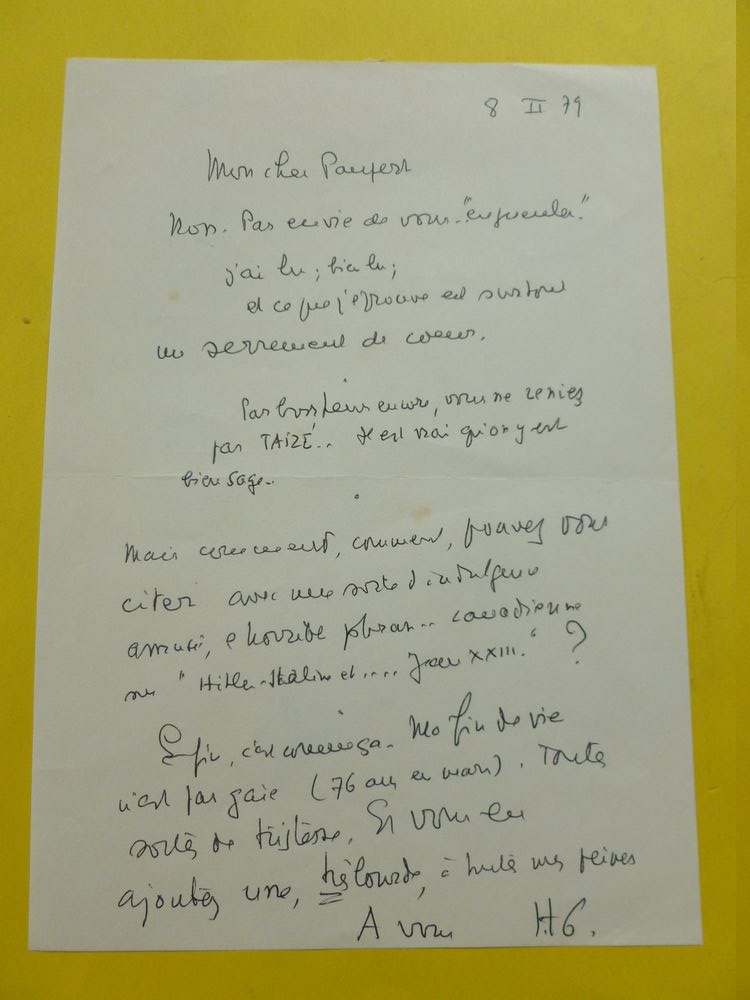 8 II 79
Mon cher Paupert
Non. Pas envie de vous "engueuler."
j'ai lu ; bien lu ;
et ce que j'éprouve est surtout
un serrement de coeur.
Par bonheur encore, vous ne reniez
pas TAIZÉ.. Il est vrai qu'on y est
bien sage..
Mais comment, comment, pouvez vous
citer avec une sorte d'indulgence
amusée, horrible phrase.. canadienne
sur "Hitler-Staline et.... Jean XXIII." ?
Enfin, c'est comme ça. Ma fin de vie
n'est pas gaie (76 ans en mars). Toutes
sortes de tristesse. Et vous en
ajoutez une, très lourde, à toutes mes peines
A vous H G.